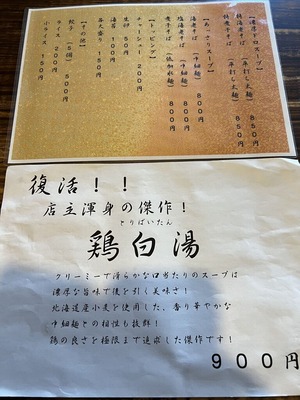 【濃厚トロスープ】
海老そば（平打ち太麺） 850円
煮干そば（平打ち太麺） 850円
【あっさりスープ】
海老そば（中細麺） 800円
塩海老そば（中細麺） 800円
煮干そば（低加水麺） 800円
【トッピング】
チャーシュー
海苔 100円
各大盛り・150円
【その他】
餃子（5個） 500円
ライス 200円
小ライス 150円
復活！！
店主渾身の傑作！
とりぱいたん
鶏白湯
クリーミーで滑らかな口当たりのスープは
濃厚な旨味で後を引く美味さ！
北海道産小麦を使用した、香り華やかな
中細麺との相性も抜群！
鶏の良さを極限まで追求した傑作です！
900円